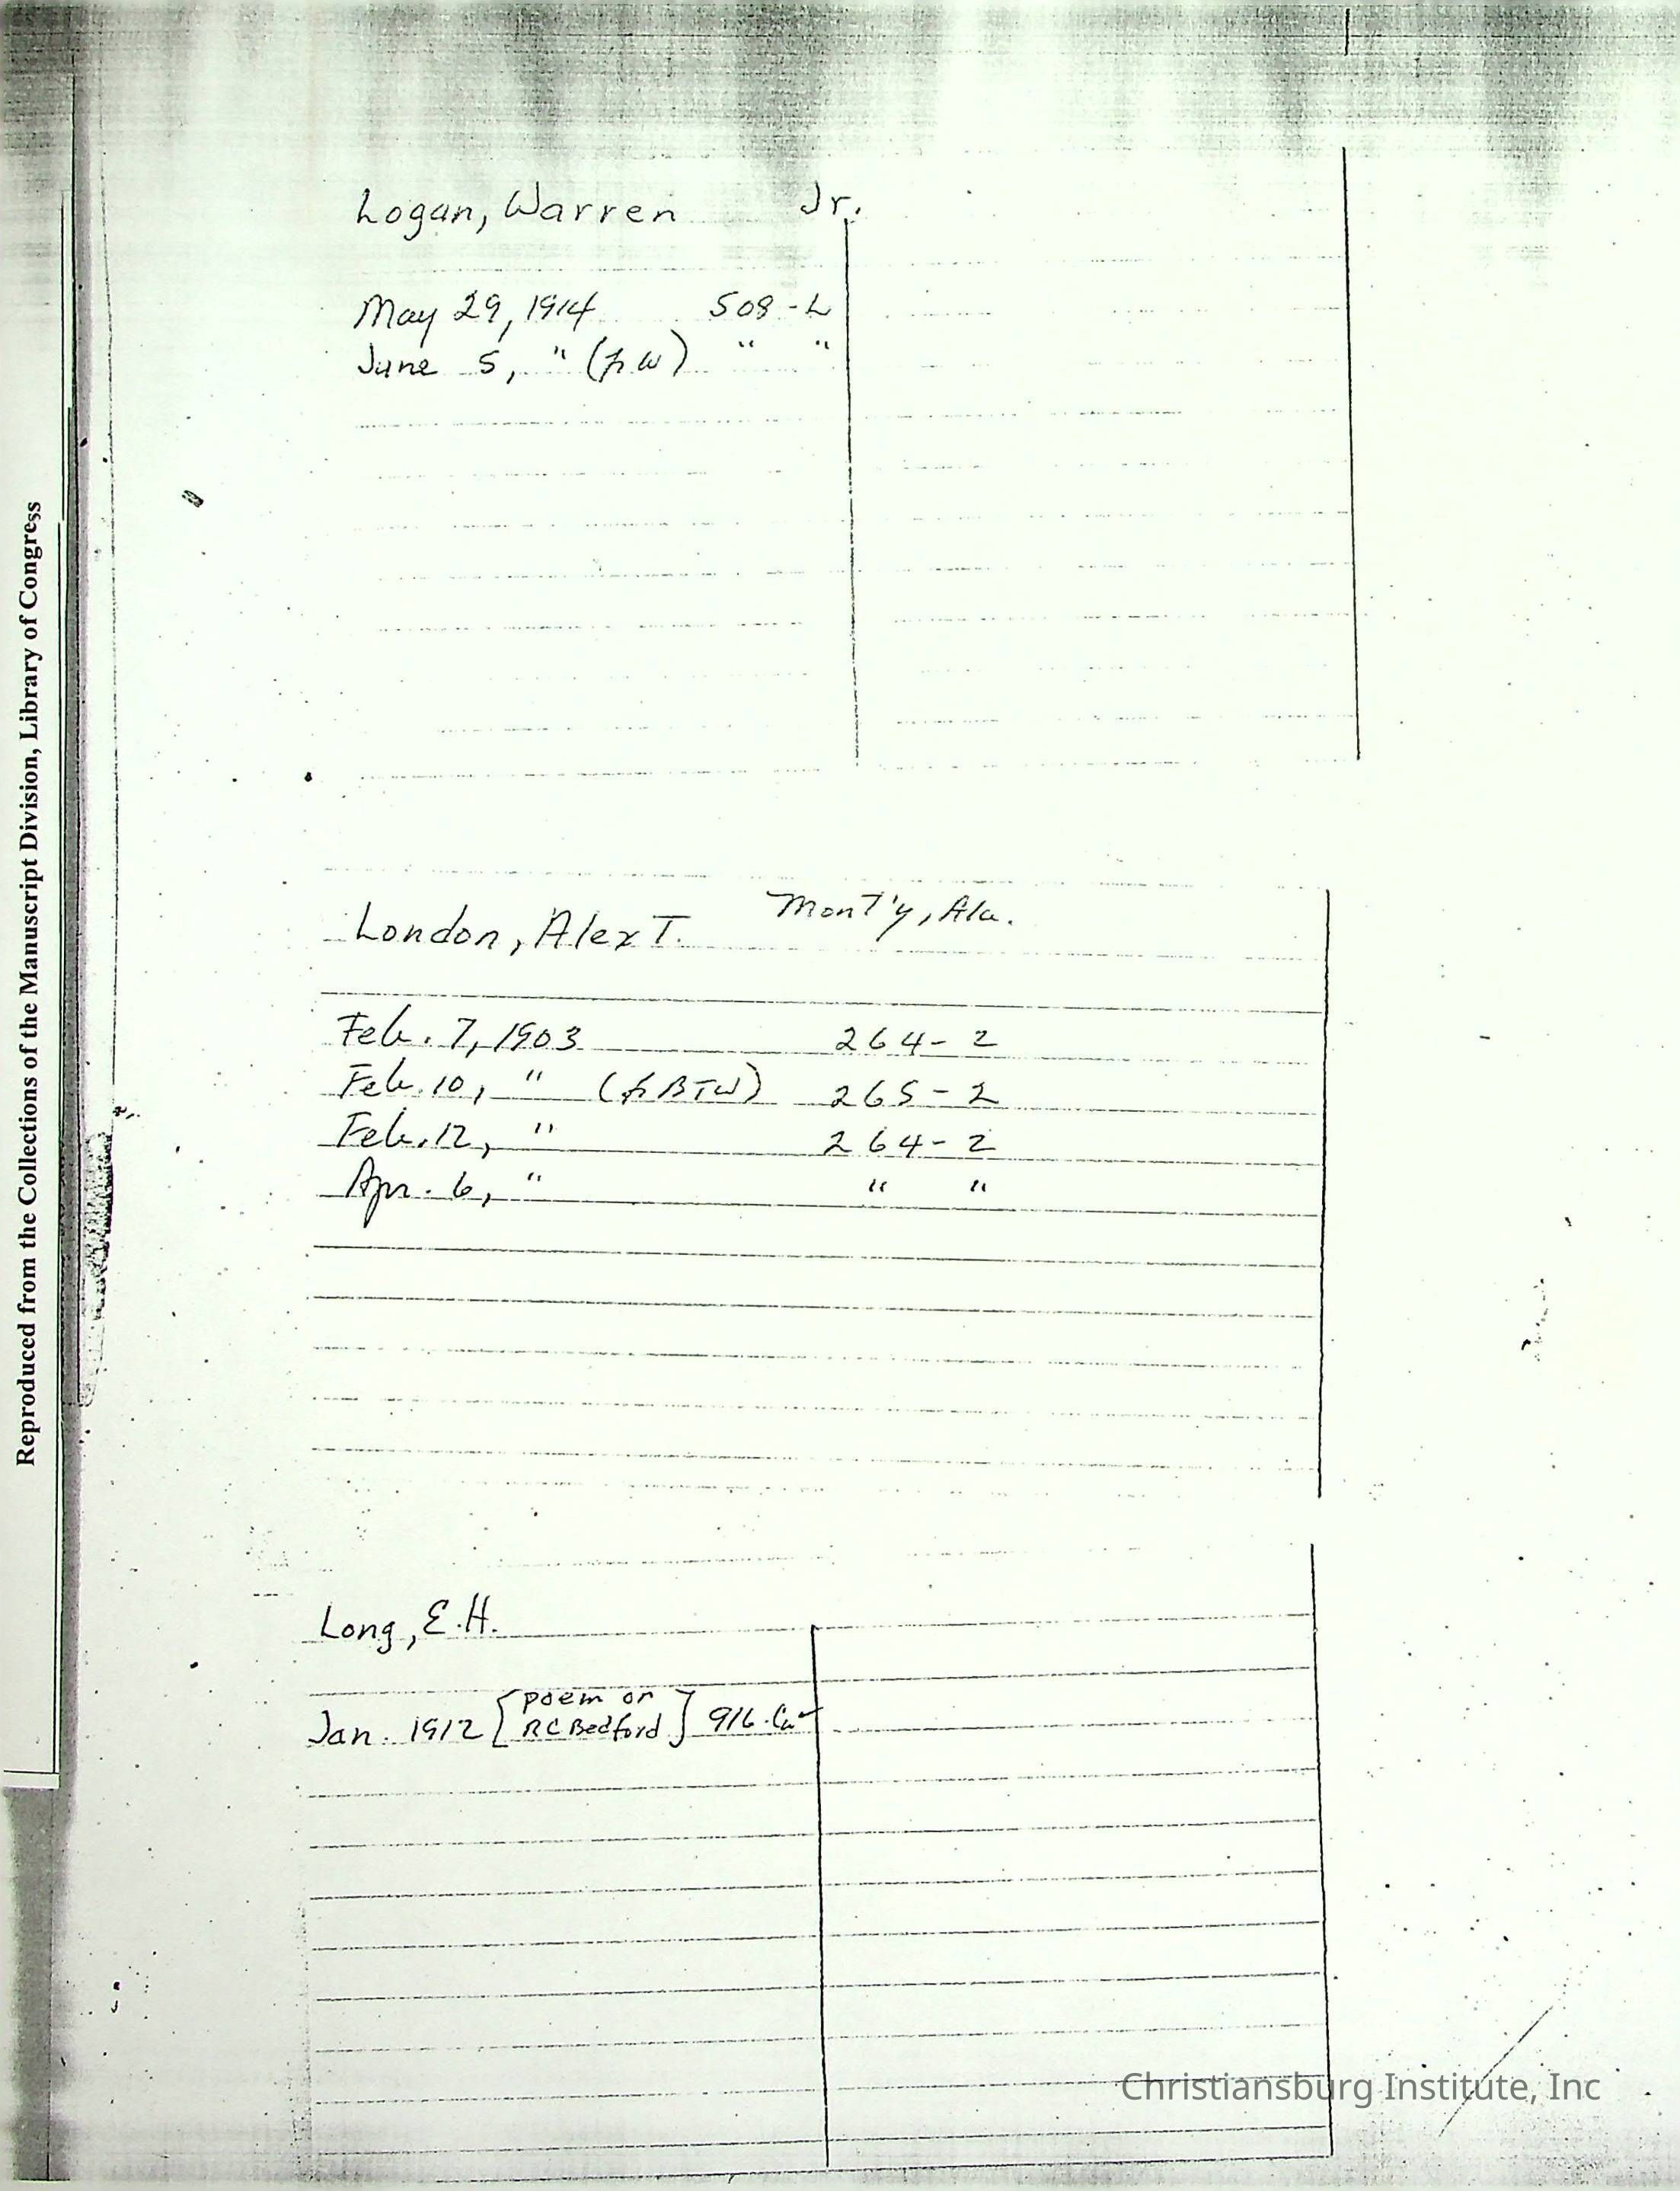 Logan, Warren Jr.
May 29, 1914 508-L
June 5, " ( W) " "
London, Alex T. Mont'y, Ala.
Feb. 7, 1903 264-2
Feb. 10, " ( BTW) 265-2
Feb. 12, " 264-2
Apr. 6, " " "
Long, E.H.
Jan. 1912 [poem on
RC Bedford] 916.
Reproduced from the Collections of the Manuscript Division, Library of Congress
Christiansburg Institute, Inc